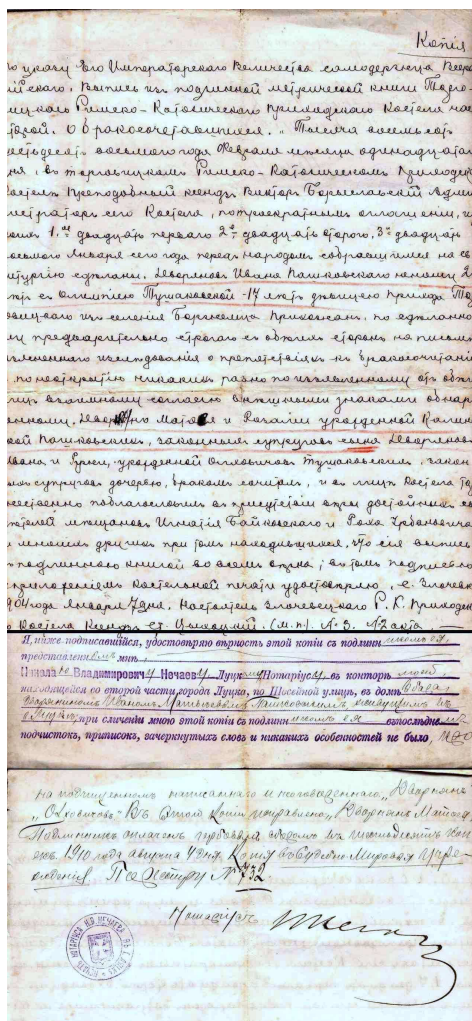 Копія
По указу Его Императорскаго Величества самодержца Всерос
ійскаго. Выпись изъ подлинной метрической книги Торго
вицкаго Римско-Католическаго Приходскаго Костела на
второй. О бракосочетавшихся. „Тысяча восемьсотъ
шестьдесятъ восьмого года Февраля мѣсяца одинадцатаго
дня, въ торговицкомъ Римско-Католическомъ Приходскомъ
Костелѣ Преподобный ксендзъ Викторъ Админи
страторъ сего Костела, по троекратномъ оглашеніи,
1.го двадцать перваго 2го двадцать второго, 3го двадцать
восьмого Января сего года передъ народомъ собравшимся на
литургію сдѣланы, Дворянъ Ивана Пашковскаго юношу
лѣтъ съ Олимпіею Тушаковской - 17 лѣтъ дѣвицею Прихода Тор
говицкаго изъ селенія Прихожанъ, по сдѣланно
му предварительно строгаго съ обѣихъ сторонъ на письмѣ
изслѣдованія о препятствіяхъ къ бракосочетанію
и по неоткрытію никакихъ разно по изъявленному отъ обѣихъ
лицъ взаимному согласію внѣшними знаками обнару
женному, Матвѣя и Розаліи урожденной
Пашковскихъ, законныхъ супруговъ сына Дворянъ
Ивана и урожденной Тушаковскихъ, закон
ныхъ супруговъ дочерью, бракомъ сочеталъ, и въ лицѣ Костела тор
жественно благословилъ въ присутствіи достойныхъ сви
дѣтелей мѣщановъ Игнатія Байковскаго и Роха
и многихъ другихъ при томъ находившихся. Что сія выпись
съ подлинною книгой во всемъ вѣрна; въ томъ подписью
съ приложеніемъ костельной печати удостовѣряю. с.
1904 года Января 7 дня. Настоятель Р. К. Приходск
го Костела Ксендзъ Ст. (м.п.) № 3. № 2 акта
Я, ниже подписавшійся, удостовѣряю вѣрность этой копіи съ подлинникомъ ея,
представленнымъ мнѣ,
Николаю Владимировичу Нечаеву Луцкому Нотаріусу, въ конторѣ моей,
находящейся во второй части, города Луцка, по Шосейной улицѣ, въ домѣ
дворяниномъ Иваномъ Матвѣевичемъ Пашковскимъ, живущимъ въ
г. Луцкѣ, при сличеніи мною этой копіи съ подлинникомъ ея въ послѣднемъ
подчистокъ, приписокъ, зачеркнутыхъ словъ и никакихъ особенностей не было,
на подчищенномъ написаннаго и неоговореннаго „Дворянъ“
Въ этой копіи поправлено „Дворянъ Матвѣя“
Подлинникъ оплаченъ гербовымъ сборомъ въ шестьдесятъ коп
ѣекъ. 1910 года августа 4 дня. Копія въ Судебно-Мировыя Учре
жденія. По реестру № 732
Нотаріусъ